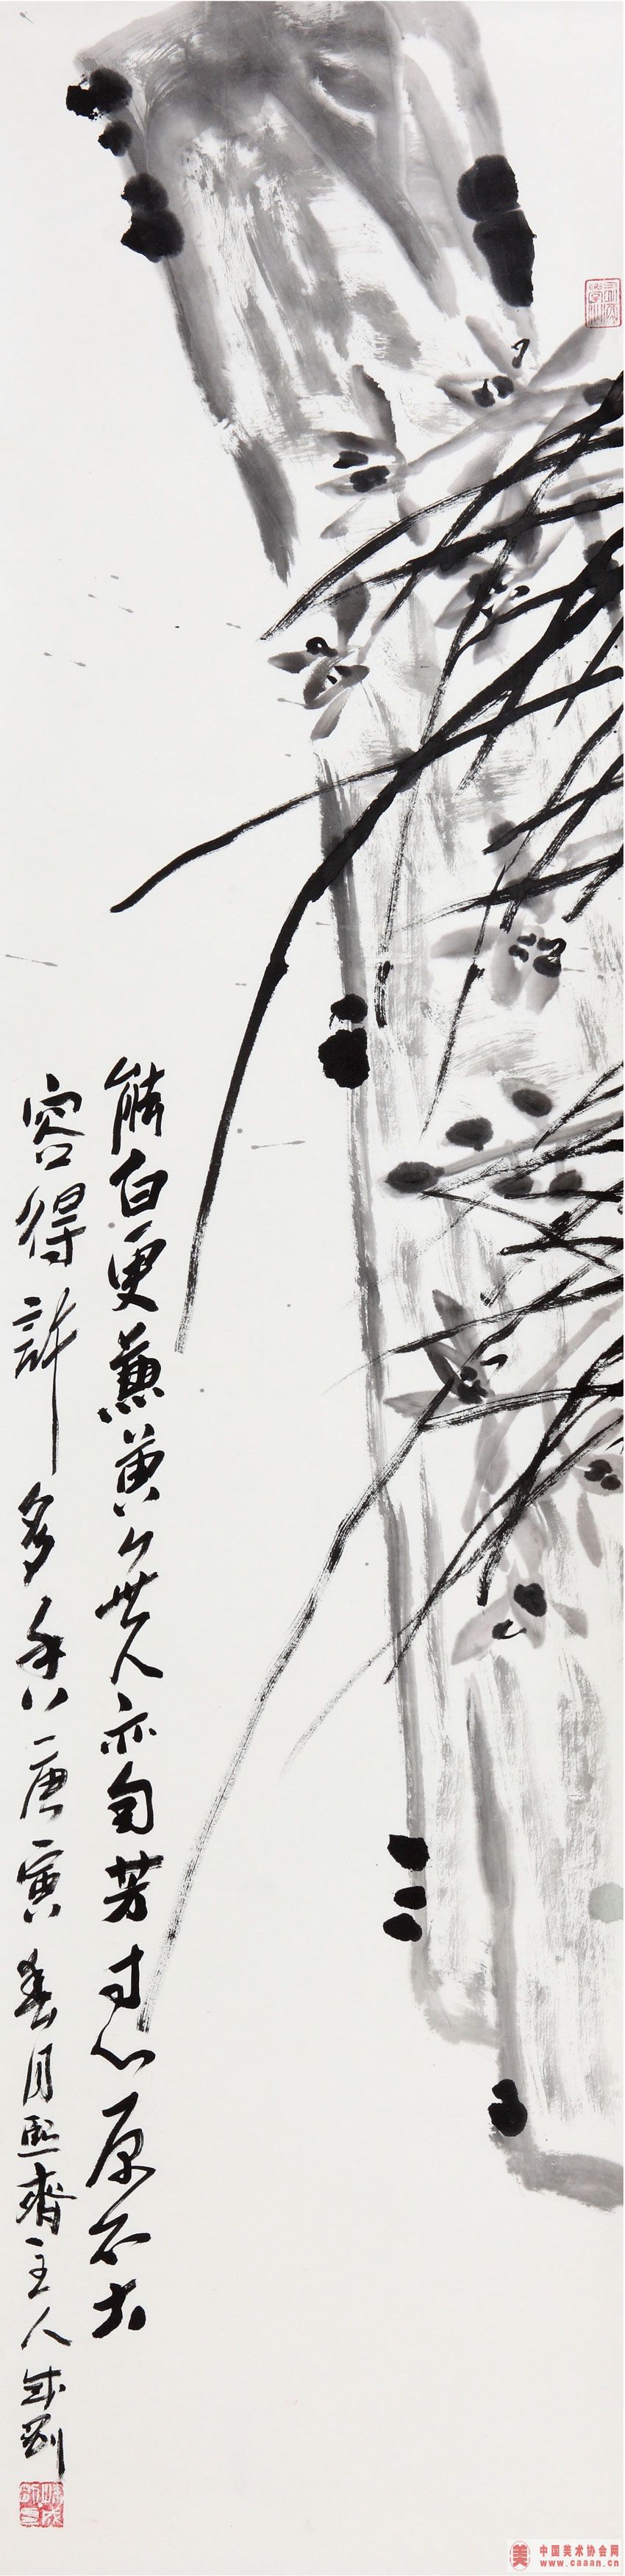 能白更兼黄無人亦自芳寸心原不大
容得許多香庚寅春月熙齋主人成剛
美
中国美术协会网
www.caaan.cn